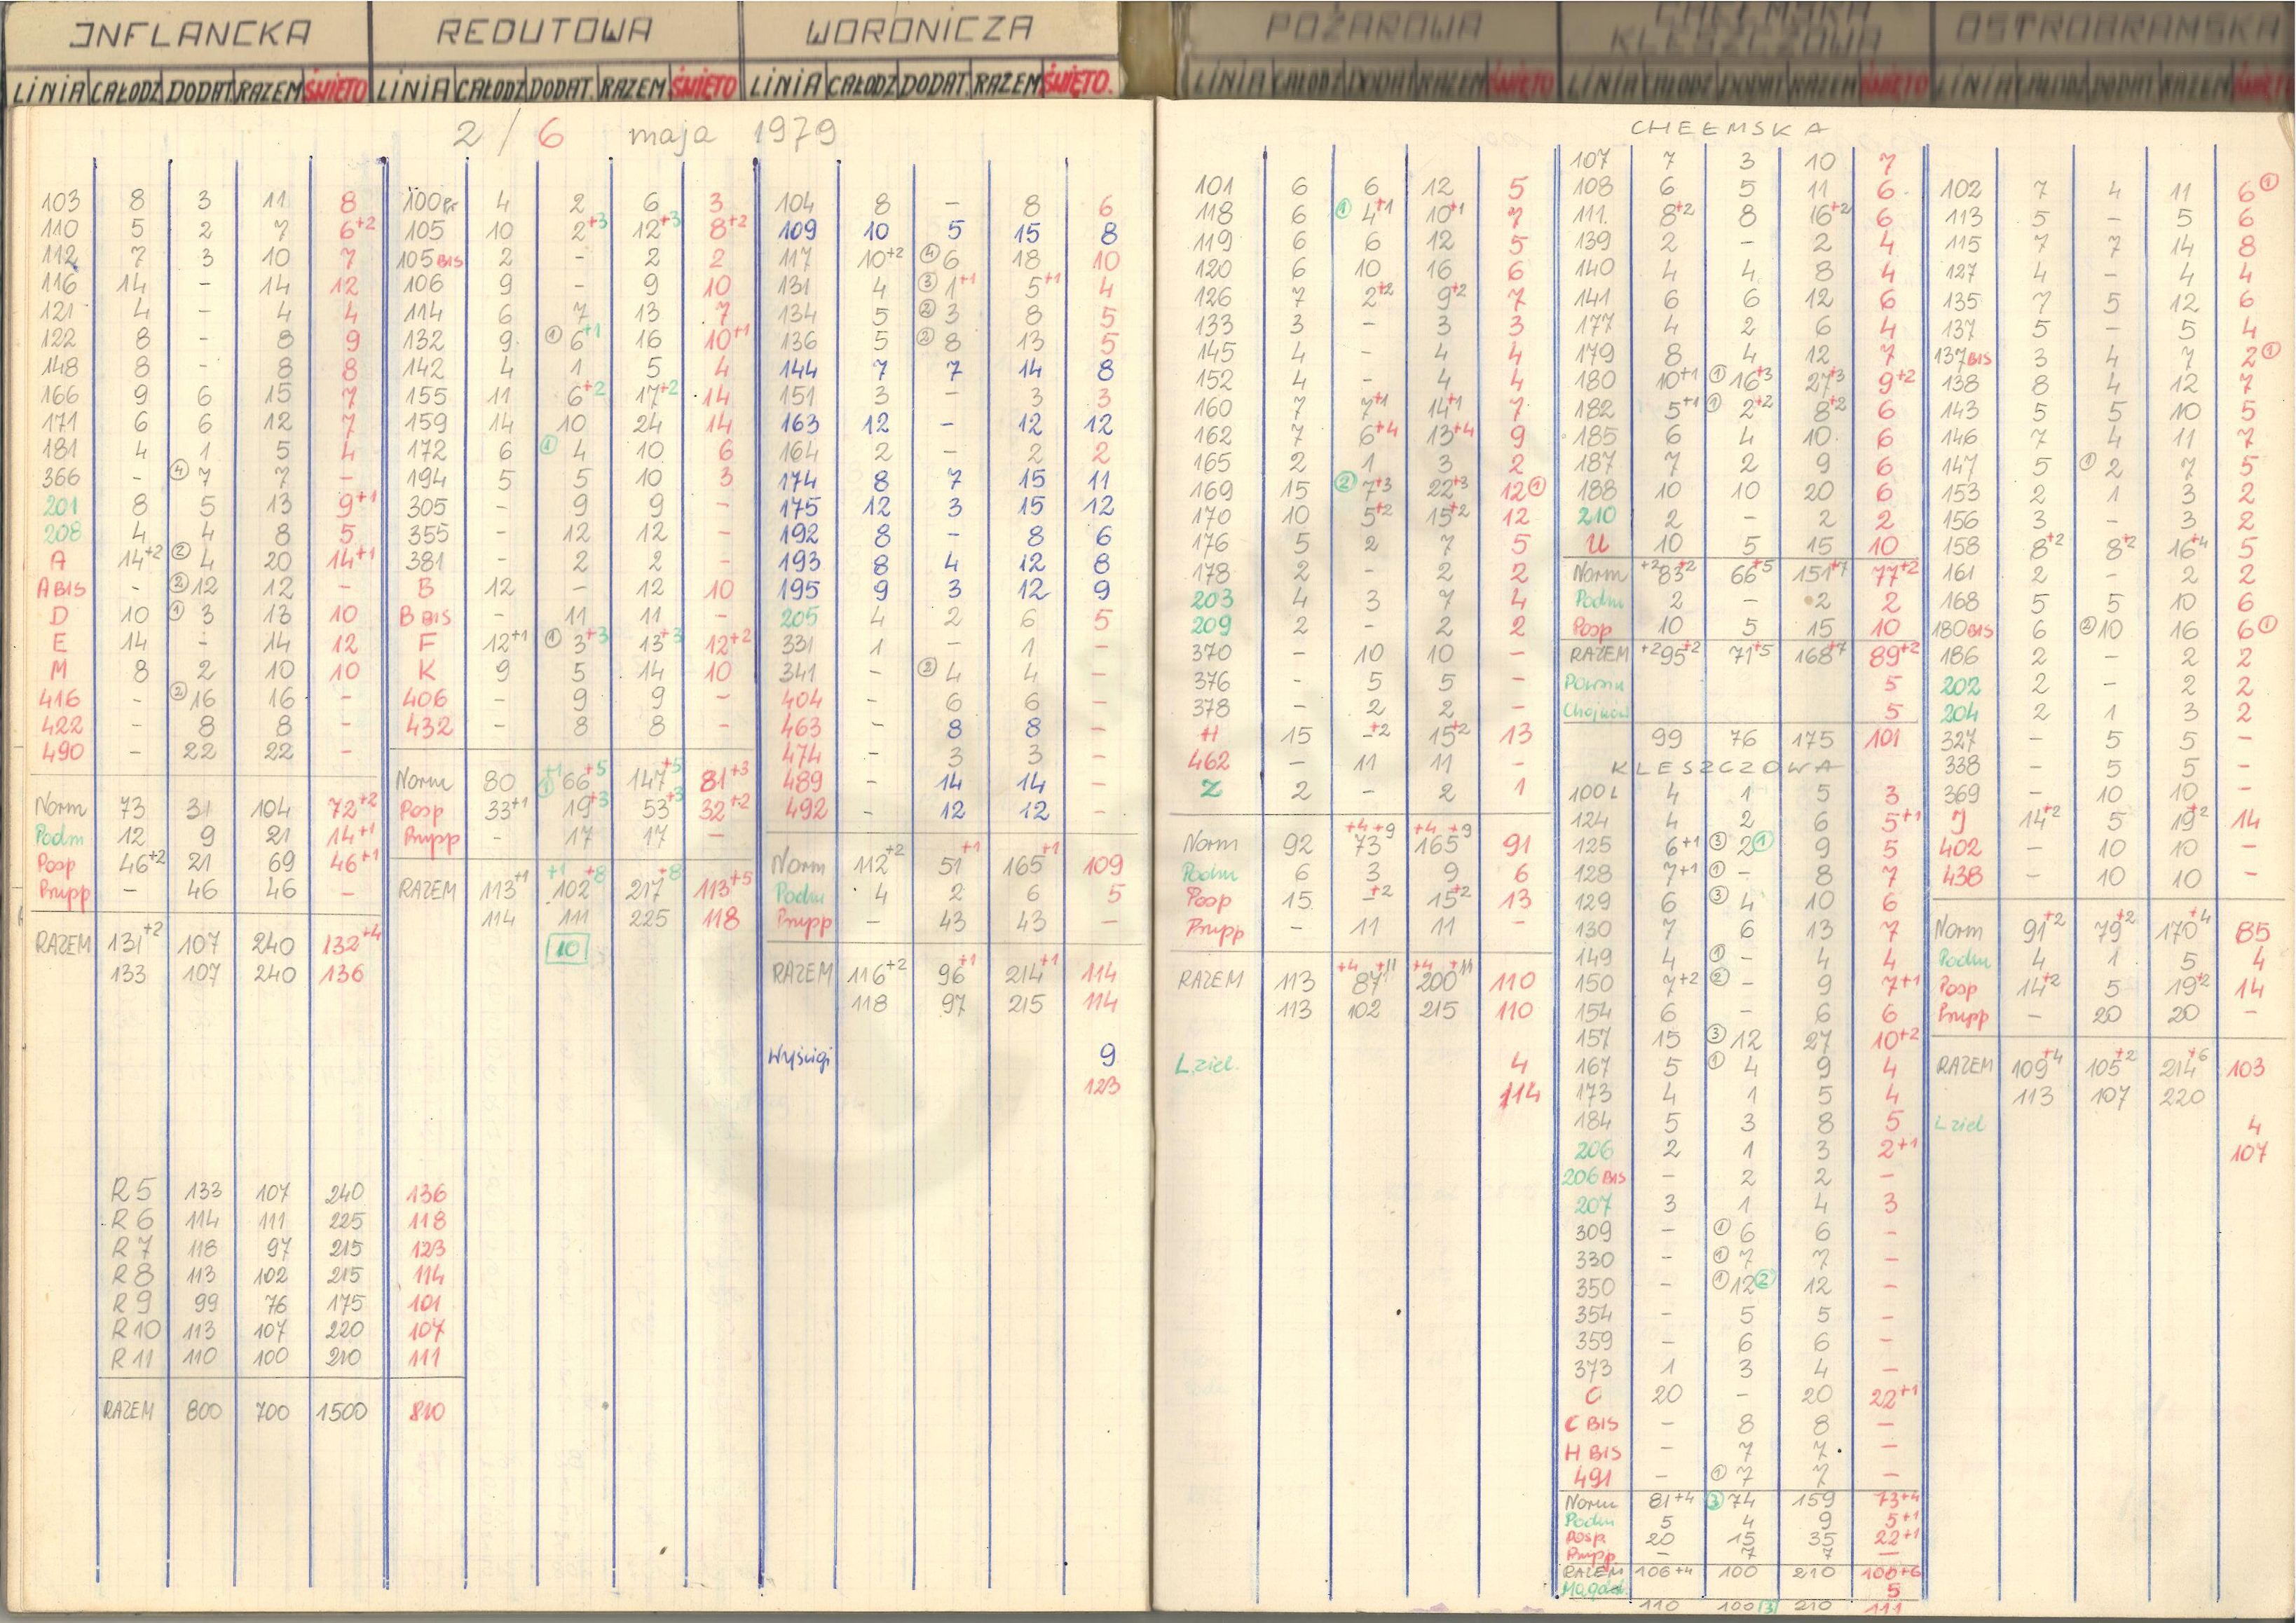 INFLANCKA
LINIA CAŁODZ DODAT RAZEM ŚWIĘTO
2 / 6 maja 1979
103 8 3 11 8
110 5 2 7 6+2
112 7 3 10 7
116 14 - 14 12
121 4 - 4 4
122 8 - 8 9
148 8 - 8 8
166 9 6 15 7
171 6 6 12 7
181 4 1 5 4
366 - ④ 7 7 -
201 8 5 13 9+1
208 4 4 8 5
A 14+2 ② 4 20 14+1
A BIS - ② 12 12 -
D 10 ① 3 13 10
E 14 - 14 12
M 8 2 10 10
416 - ② 16 16 -
422 - 8 8 -
490 - 22 22 -
Norm 73 31 104 72+2
Podm 12 9 21 14+1
Posp 46+2 21 69 46+1
Prupp - 46 46 -
RAZEM 131+2 107 240 132+4
133 107 240 136
R 5 133 107 240 136
R 6 114 111 225 118
R 7 118 97 215 123
R 8 113 102 215 114
R 9 99 76 175 101
R 10 113 107 220 107
R 11 110 100 210 111
RAZEM 800 700 1500 810
REDUTOWA
LINIA CAŁODZ DODAT. RAZEM ŚWIĘTO
100 Pr 4 2 6 3
105 10 2+3 12+3 8+2
105 BIS 2 - 2 2
106 9 - 9 10
114 6 7 13 7
132 9 ① 6+1 16 10+1
142 4 1 5 4
155 11 6+2 17+2 14
159 14 10 24 14
172 6 ① 4 10 6
194 5 5 10 3
305 - 9 9 -
355 - 12 12 -
381 - 2 2 -
B 12 - 12 10
B BIS - 11 11 -
F 12+1 ① 3+3 13+3 12+2
K 9 5 14 10
406 - 9 9 -
432 - 8 8 -
Norm 80 +1 ① 66+5 147+5 81+3
Posp 33+1 19+3 53+3 32+2
Prupp - 17 17 -
RAZEM 113+1 +1 102+8 217+8 113+5
114 111 225 118
10
WORONICZA
LINIA CAŁODZ DODAT. RAZEM ŚWIĘTO.
104 8 - 8 6
109 10 5 15 8
117 10+2 ④ 6 18 10
131 4 ③ 1+1 5+1 4
134 5 ② 3 8 5
136 5 ② 8 13 5
144 7 7 14 8
151 3 - 3 3
163 12 - 12 12
164 2 - 2 2
174 8 7 15 11
175 12 3 15 12
192 8 - 8 6
193 8 4 12 8
195 9 3 12 9
205 4 2 6 5
331 1 - 1 -
341 - ② 4 4 -
404 - 6 6 -
463 - 8 8 -
474 - 3 3 -
489 - 14 14 -
492 - 12 12 -
Norm 112+2 51+1 165+1 109
Podm 4 2 6 5
Prupp - 43 43 -
RAZEM 116+2 96+1 214+1 114
118 97 215 114
Wyścigi 9
123
POŻAROWA
LINIA CAŁODZ DODAT RAZEM ŚWIĘTO
101 6 6 12 5
118 6 ① 4+1 10+1 7
119 6 6 12 5
120 6 10 16 6
126 7 2+2 9+2 7
133 3 - 3 3
145 4 - 4 4
152 4 - 4 4
160 7 7+1 14+1 7
162 7 6+4 13+4 9
165 2 1 3 2
169 15 ② 7+3 22+3 12 ①
170 10 5+2 15+2 12
176 5 2 7 5
178 2 - 2 2
203 4 3 7 4
209 2 - 2 2
370 - 10 10 -
376 - 5 5 -
378 - 2 2 -
H 15 -+2 15+2 13
462 - 11 11 -
Z 2 - 2 1
Norm 92 +4 73+9 +4 165+9 91
Podm 6 3 9 6
Posp 15 -+2 15+2 13
Prupp - 11 11 -
RAZEM 113 +4 87+11 +4 200+11 110
113 102 215 110
L. ziel. 4
114
CHEŁMSKA
KLESZCZOWA
LINIA CAŁODZ DODAT RAZEM ŚWIĘTO
CHEŁMSKA
107 7 3 10 7
108 6 5 11 6
111. 8+2 8 16+2 6
139 2 - 2 4
140 4 4 8 4
141 6 6 12 6
177 4 2 6 4
179 8 4 12 7
180 10+1 ① 16+3 27+3 9+2
182 5+1 ① 2+2 8+2 6
185 6 4 10 6
187 7 2 9 6
188 10 10 20 6
210 2 - 2 2
U 10 5 15 10
Norm +2 83+2 66+5 151+7 77+2
Podm 2 - 2 2
Posp 10 5 15 10
RAZEM +2 95+2 71+5 168+7 89+2
5
5
99 76 175 101
KLESZCZOWA
100 L 4 1 5 3
124 4 2 6 5+1
125 6+1 ③ 2 ① 9 5
128 7+1 ① - 8 7
129 6 ③ 4 10 6
130 7 6 13 7
149 4 ① - 4 4
150 7+2 ② - 9 7+1
154 6 - 6 6
157 15 ③ 12 27 10+2
167 5 ① 4 9 4
173 4 1 5 4
184 5 3 8 5
206 2 1 3 2+1
206 BIS - 2 2 -
207 3 1 4 3
309 - ① 6 6 -
330 - ① 7 7 -
350 - ① 12 ② 12 -
354 - 5 5 -
359 - 6 6 -
373 1 3 4 -
C 20 - 20 22+1
C BIS - 8 8 -
H BIS - 7 7 -
491 - ① 7 7 -
Norm 81+4 ③ 74 159 73+4
Podm 5 4 9 5+1
Posp. 20 15 35 22+1
Prupp. - 7 7 -
RAZEM 106+4 100 210 100+6
5
110 100 3 210 111
OSTROBRAMSKA
LINIA CAŁODZ DODAT RAZEM ŚWIĘT
102 7 4 11 6 ①
113 5 - 5 6
115 7 7 14 8
127 4 - 4 4
135 7 5 12 6
137 5 - 5 4
137 BIS 3 4 7 2 ①
138 8 4 12 7
143 5 5 10 5
146 7 4 11 7
147 5 ① 2 7 5
153 2 1 3 2
156 3 - 3 2
158 8+2 8+2 16+4 5
161 2 - 2 2
168 5 5 10 6
180 BIS 6 ② 10 16 6 ①
186 2 - 2 2
202 2 - 2 2
204 2 1 3 2
327 - 5 5 -
338 - 5 5 -
369 - 10 10 -
J 14+2 5 19+2 14
402 - 10 10 -
438 - 10 10 -
Norm 91+2 79+2 170+4 85
Podm 4 1 5 4
Posp 14+2 5 19+2 14
Prupp - 20 20 -
RAZEM 109+4 105+2 214+6 103
113 107 220
L ziel 4
107